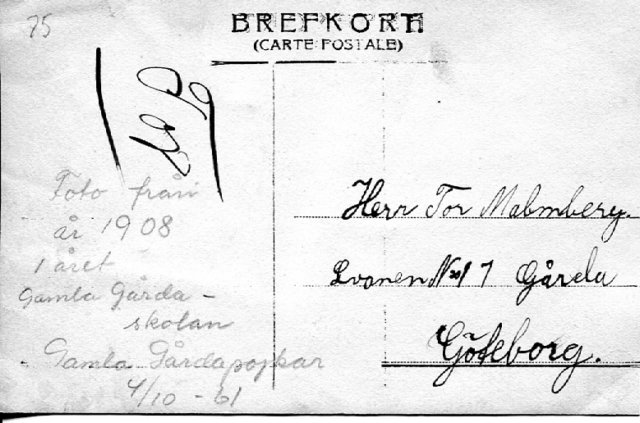 75
BREFKORT
(CARTE POSTALE)
Foto från
år 1908
1 året
Gamla Gårda -
skolan
Gamla Gårdapojkar
4/10 - 61
Herr Tor Malmberg.
7 Gårda
Göteborg.